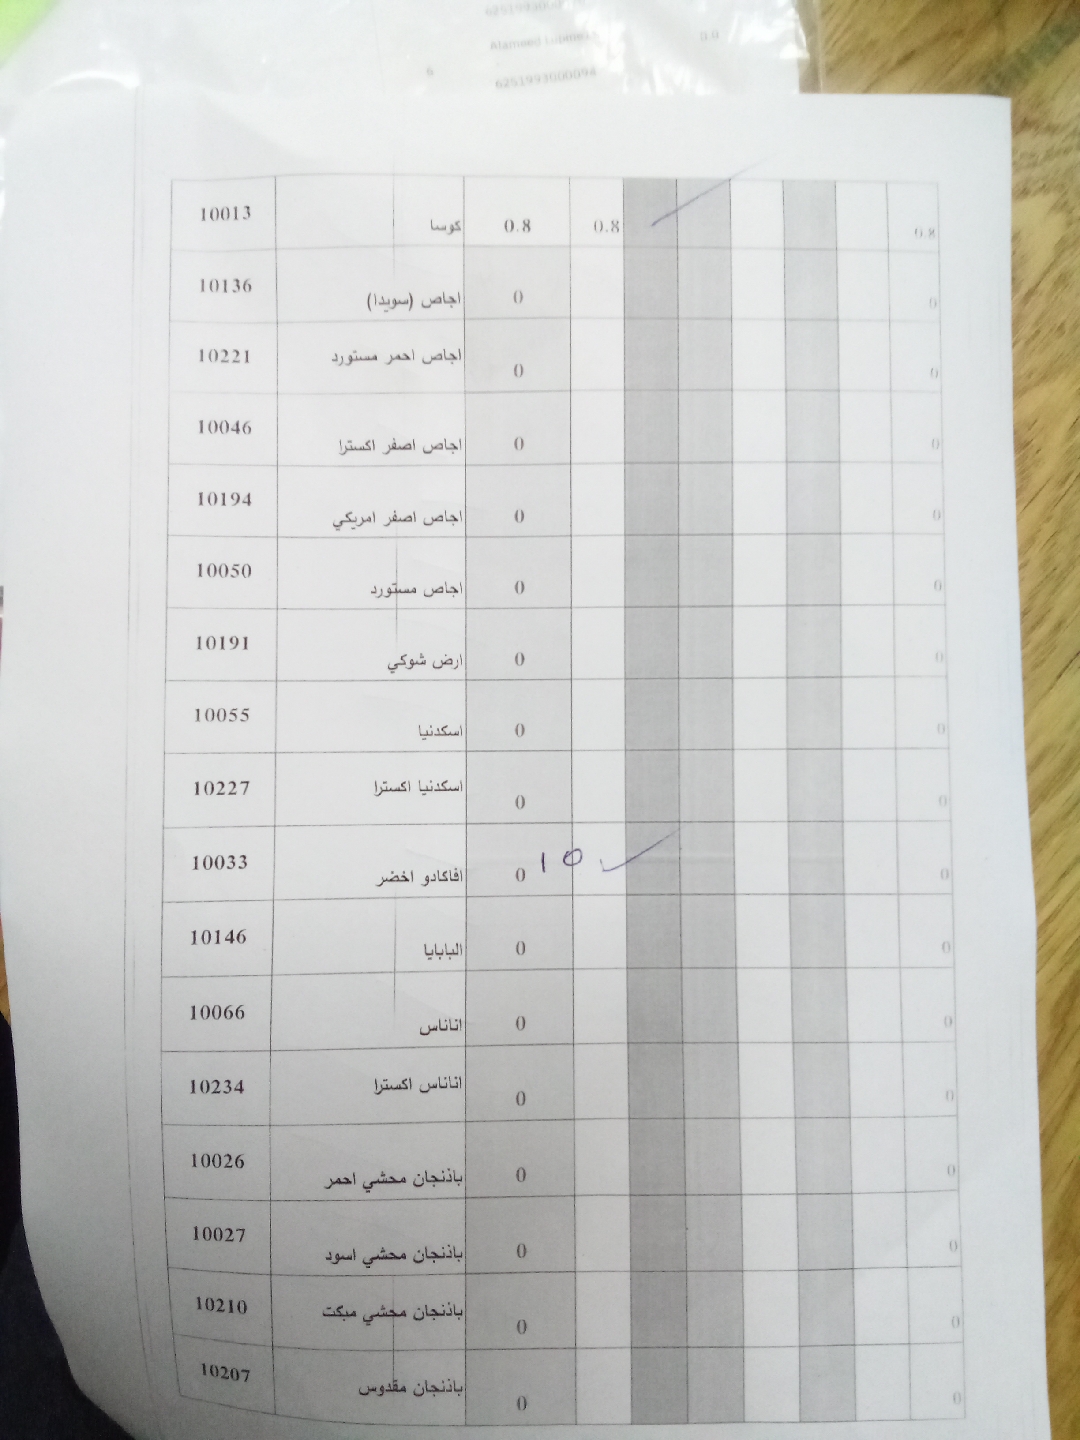 6251993000094
6
0.0
10013 كوسا 0.8 0.8 0.8
10136 اجاص (سويدا) 0 0
10221 اجاص احمر مستورد 0 0
10046 اجاص اصفر اكسترا 0 0
10194 اجاص اصفر امريكي 0 0
10050 اجاص مستورد 0 0
10191 ارض شوكي 0 0
10055 اسكدنيا 0 0
10227 اسكدنيا اكسترا 0 0
10033 افاكادو اخضر 0 10 0
10146 البابايا 0 0
10066 اناناس 0 0
10234 اناناس اكسترا 0 0
10026 باذنجان محشي احمر 0 0
10027 باذنجان محشي اسود 0 0
10210 باذنجان محشي مبكت 0 0
10207 باذنجان مقدوس 0 0